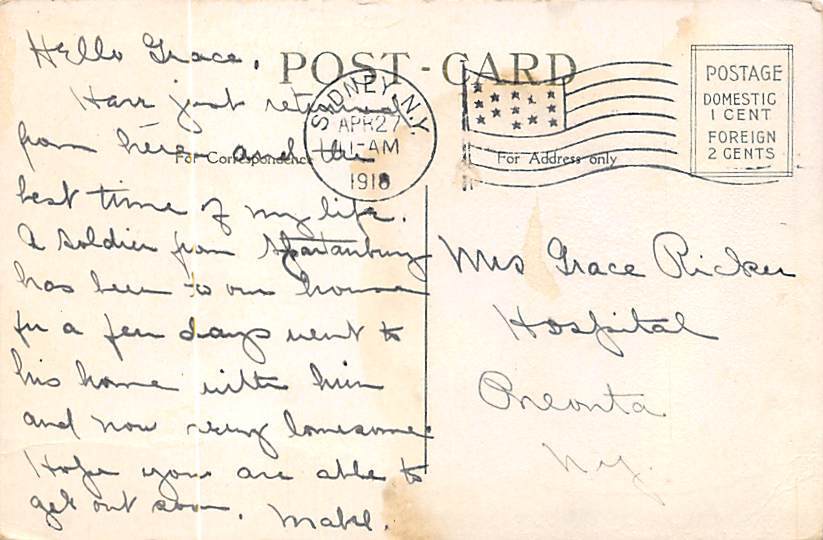 Hello Grace.
POST-CARD
Have just returned
from here and the
best time of my life.
A soldier from Spartanburg
has been to our house
for a few days went to
his home with him
and now very lonesome
Hope you are able to
get out soon. Mabel.
For Correspondence
For Address only
SIDNEY, N.Y.
APR 27
11-AM
1918
POSTAGE
DOMESTIC
1 CENT
FOREIGN
2 CENTS
Mrs Grace Ricker
Hospital
Oneonta
N.Y.